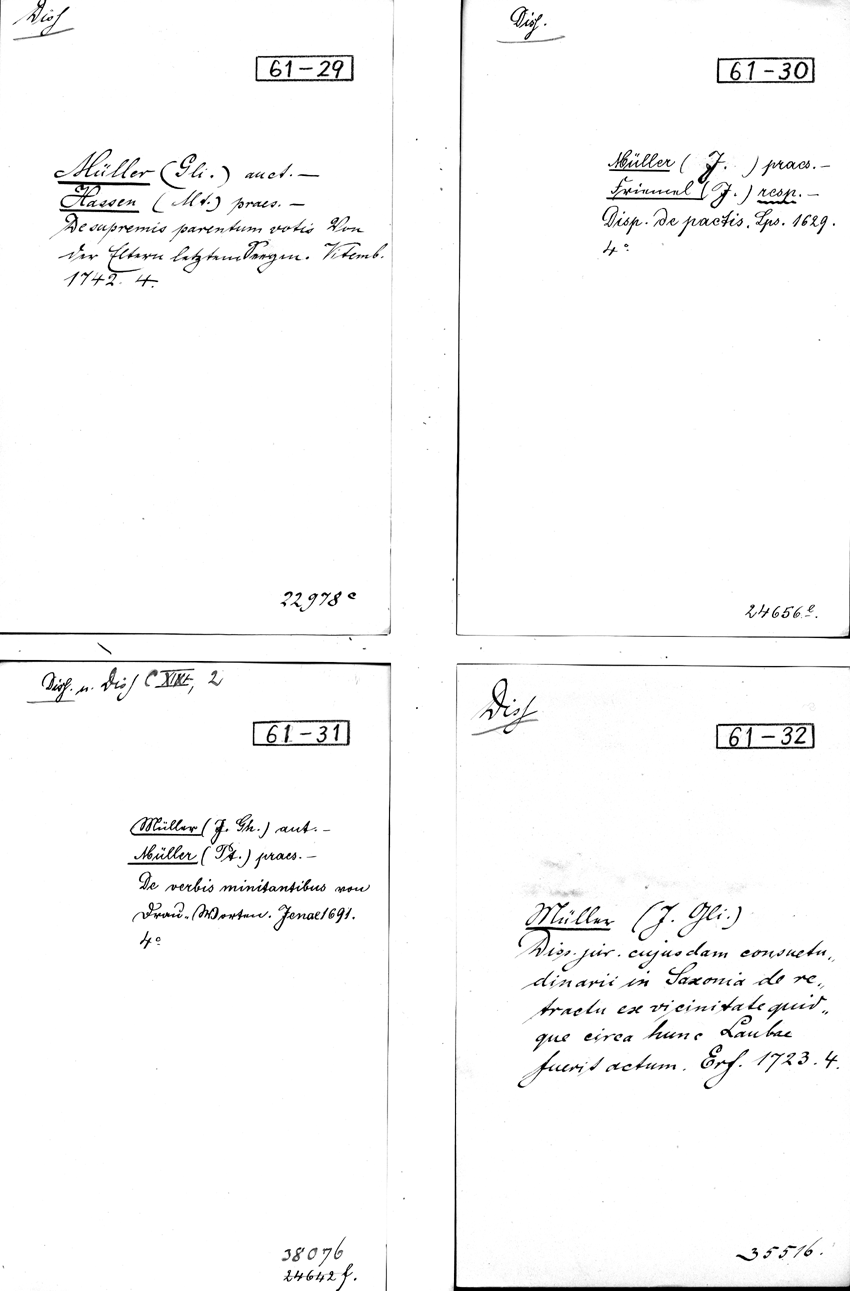 Diss
61-29
Müller (Gli.) auct. —
Hassen (Mt.) praes. —
De supremis parentum votis Von
der Eltern letztem Seegen. Vitemb.
1742. 4.
22978 c
Diss.
61-30
Müller (J. ) praes. —
Friemel (J.) resp. —
Disp. de pactis. Lps. 1629.
4°
24656 e.
Diss. u. Diss C XIII, 2
61-31
Müller (J. Gh.) aut. —
Müller (Pt.) praes. —
De verbis minitantibus von
Drau-Worten. Jenae 1691.
4°
38076
24642 f.
Diss
61-32
Müller (J. Gli.)
Diss. jur. cujusdam consuetu„
dinarii in Saxonia de re„
tractu ex vicinitate quid„
que circa hunc Laubae
fuerit actum. Erf. 1723. 4.
35516.